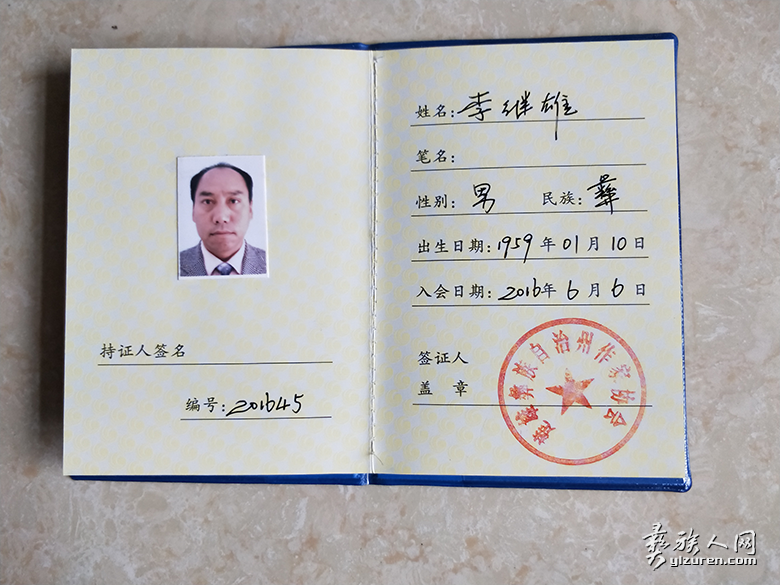 持证人签名
编号: 201645
姓名: 李继雄
笔名:
性别: 男 民族: 彝
出生日期: 1959 年 01 月 10 日
入会日期: 2016 年 6 月 6 日
签证人
盖 章
楚雄彝族自治州作家协会
彝族人网
yizuren.com